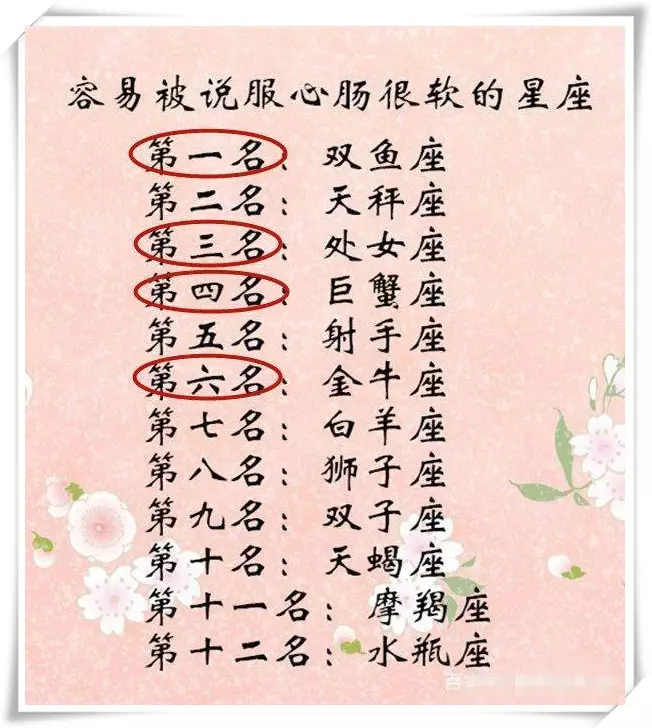 容易被说服心肠很软的星座
第一名：双鱼座
第二名：天秤座
第三名：处女座
第四名：巨蟹座
第五名：射手座
第六名：金牛座
第七名：白羊座
第八名：狮子座
第九名：双子座
第十名：天蝎座
第十一名：摩羯座
第十二名：水瓶座